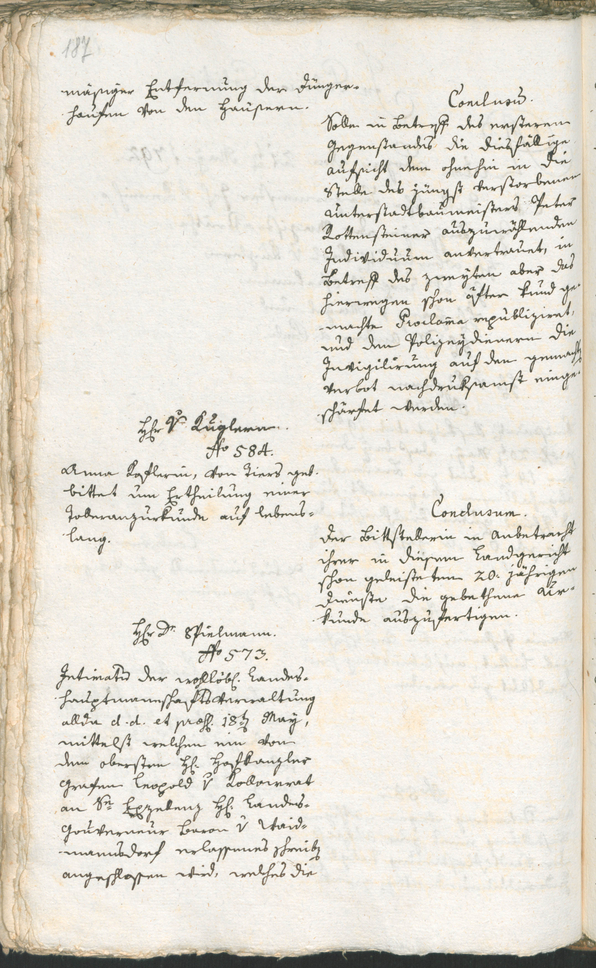 187
mäsiger Entfernung der Dünger-
haufen von den Häusern.
Conclusum.
Solle in Betreff des ersteren
Gegenstandes die diesfällige
Aufsicht dem ohnehin in die
Stelle des jüngst verstorbenen
Unterstadtbaumeisters Peter
Rottensteiner auszuwählenden
Individuum anvertrauet, in
Betreff des zweyten aber das
hierwegen schon öfter kund ge-
machte Proclama republiziret,
und den Polizeydienern die
Invigilirung auf den gemacht
Verbot nachdruksamst einge-
schärfet werden.
Hr. v. Kuglern.
No 584.
Anna Koflerin, von Tiers geb.
bittet um Ertheilung einer
Toleranzurkunde auf lebens-
lang.
Conclusum.
Der Bittstellerin in Anbetracht
ihrer in diesem Landgericht
schon geleisteten 20. jährigen
Dienste die gebethene Ur-
kunde auszufertigen.
Hr. Dr. Spielmann.
No 573.
Intimatum der wohllöbl. Landes-
hauptmannschaftsverwaltung
allda d. d. et praes. 18t May,
mittelst welchen ein von
dem obersten H. Hofkanzler
Grafen Leopold v Kollowrat
an Se. Exzellenz H. Landes-
Gouverneur Baron v Waid-
mannsdorf erlassenes Schreib
angeschlossen wird, welches die